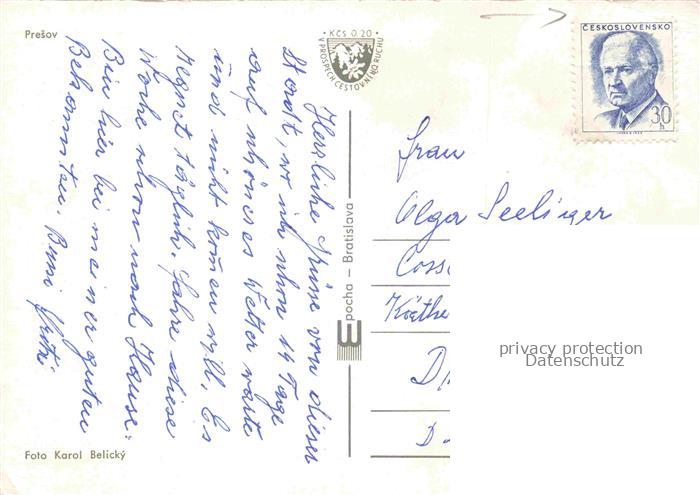 Prešov
Kčs 0,20
V PROSPĚCH CESTOVNÍHO RUCHU
ČESKOSLOVENSKO
30
h
Herzliche Grüsse von dieser
Stadt, wo ich schon 14 Tage
auf schönes Wetter warte
und nicht komen will. Es
Regnet täglich. Fahre diese
Woche schon nach Hause.
Bin hier bei meiner guten
Bekannten. Bussi
Epocha – Bratislava
Frau
Olga Seelinger
Coss
Käthe
D
D-
privacy protection
Datenschutz
Foto Karol Belický